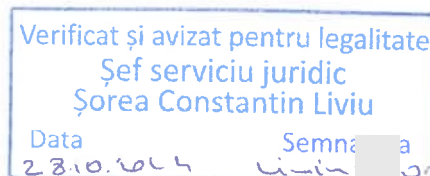 Verificat și avizat pentru legalitate
Șef serviciu juridic
Șorea Constantin Liviu
Data
28.10.2024